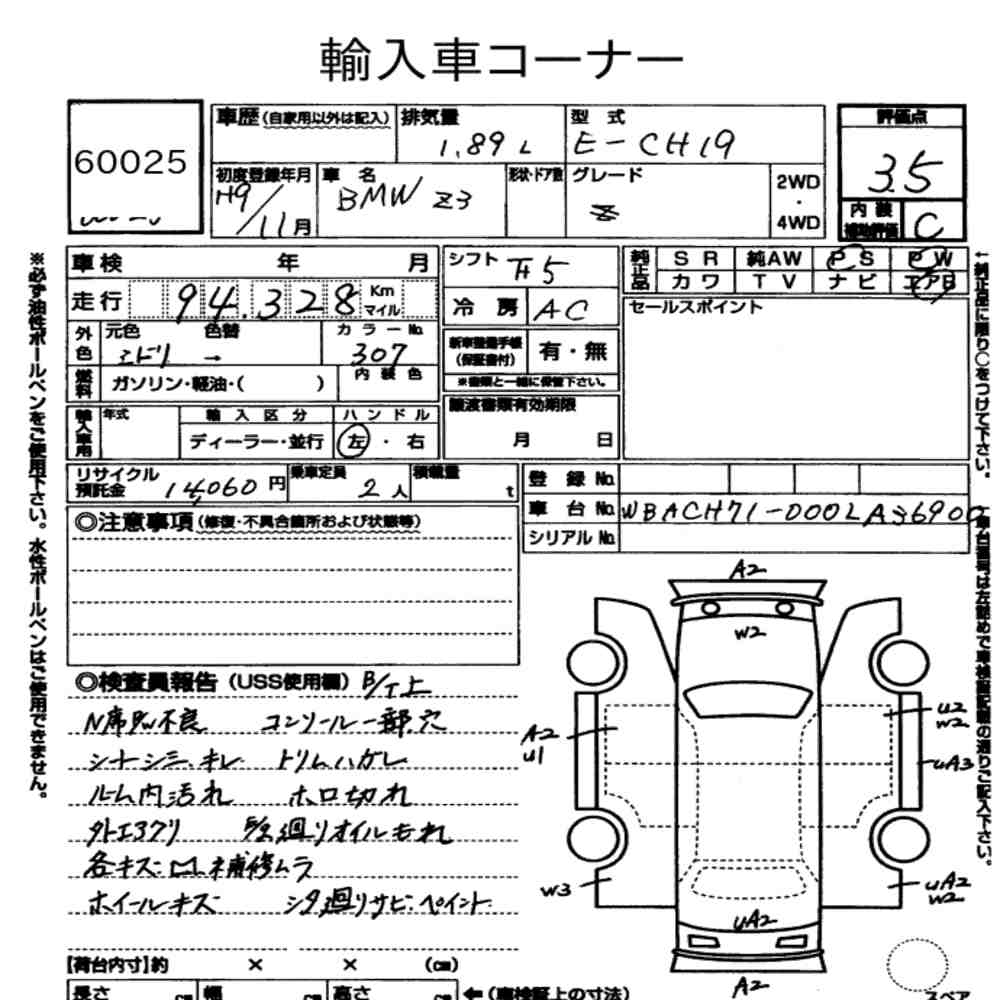 輸入車コーナー
60025
車歴(自家用以外は記入)
排気量 1.89 L
型式 E-CH19
評価点 3.5
初度登録年月 H9/11月
車名 BMW Z3
形状・ドア数
グレード
2WD・4WD
内装補助評価 C
車検 年 月
シフト F5
純正品 SR 純AW PS PW
カワ TV ナビ エアB
走行 94,328 Km マイル
冷房 AC
セールスポイント
外色 元色 ミドリ 色替 → カラーNo. 307
新車整備手帳(保証書付) 有・無
※書類と一緒に保管下さい。
燃料 ガソリン・軽油・( ) 内装色
輸入車用 年式 輸入区分 ハンドル
ディーラー・並行 左・右
譲渡書類有効期限
月 日
リサイクル預託金 14,060円
乗車定員 2人
積載量 t
登録No.
車台No. WBACH71-000LA36900
シリアルNo.
◎注意事項(修復・不具合箇所および状態等)
◎検査員報告(USS使用欄) B/T上
N席PW不良 コンソール一部穴
シートシミ、キレ トリムハガレ
ルーム内汚れ ホロ切れ
外エアクリ 廻りオイルもれ
各キズ 凹 補修ムラ
ホイールキズ 下廻りサビ、ペイント
A2
W2
A2
U1
U2
W2
UA3
W3
UA2
W2
UA2
A2
【荷台内寸】約 × × (cm)
長さ cm 幅 cm 高さ cm ←(車検証上の寸法)
スペア
※必ず油性ボールペンをご使用下さい。水性ボールペンはご使用できません。
↑純正品に限り○をつけて下さい。